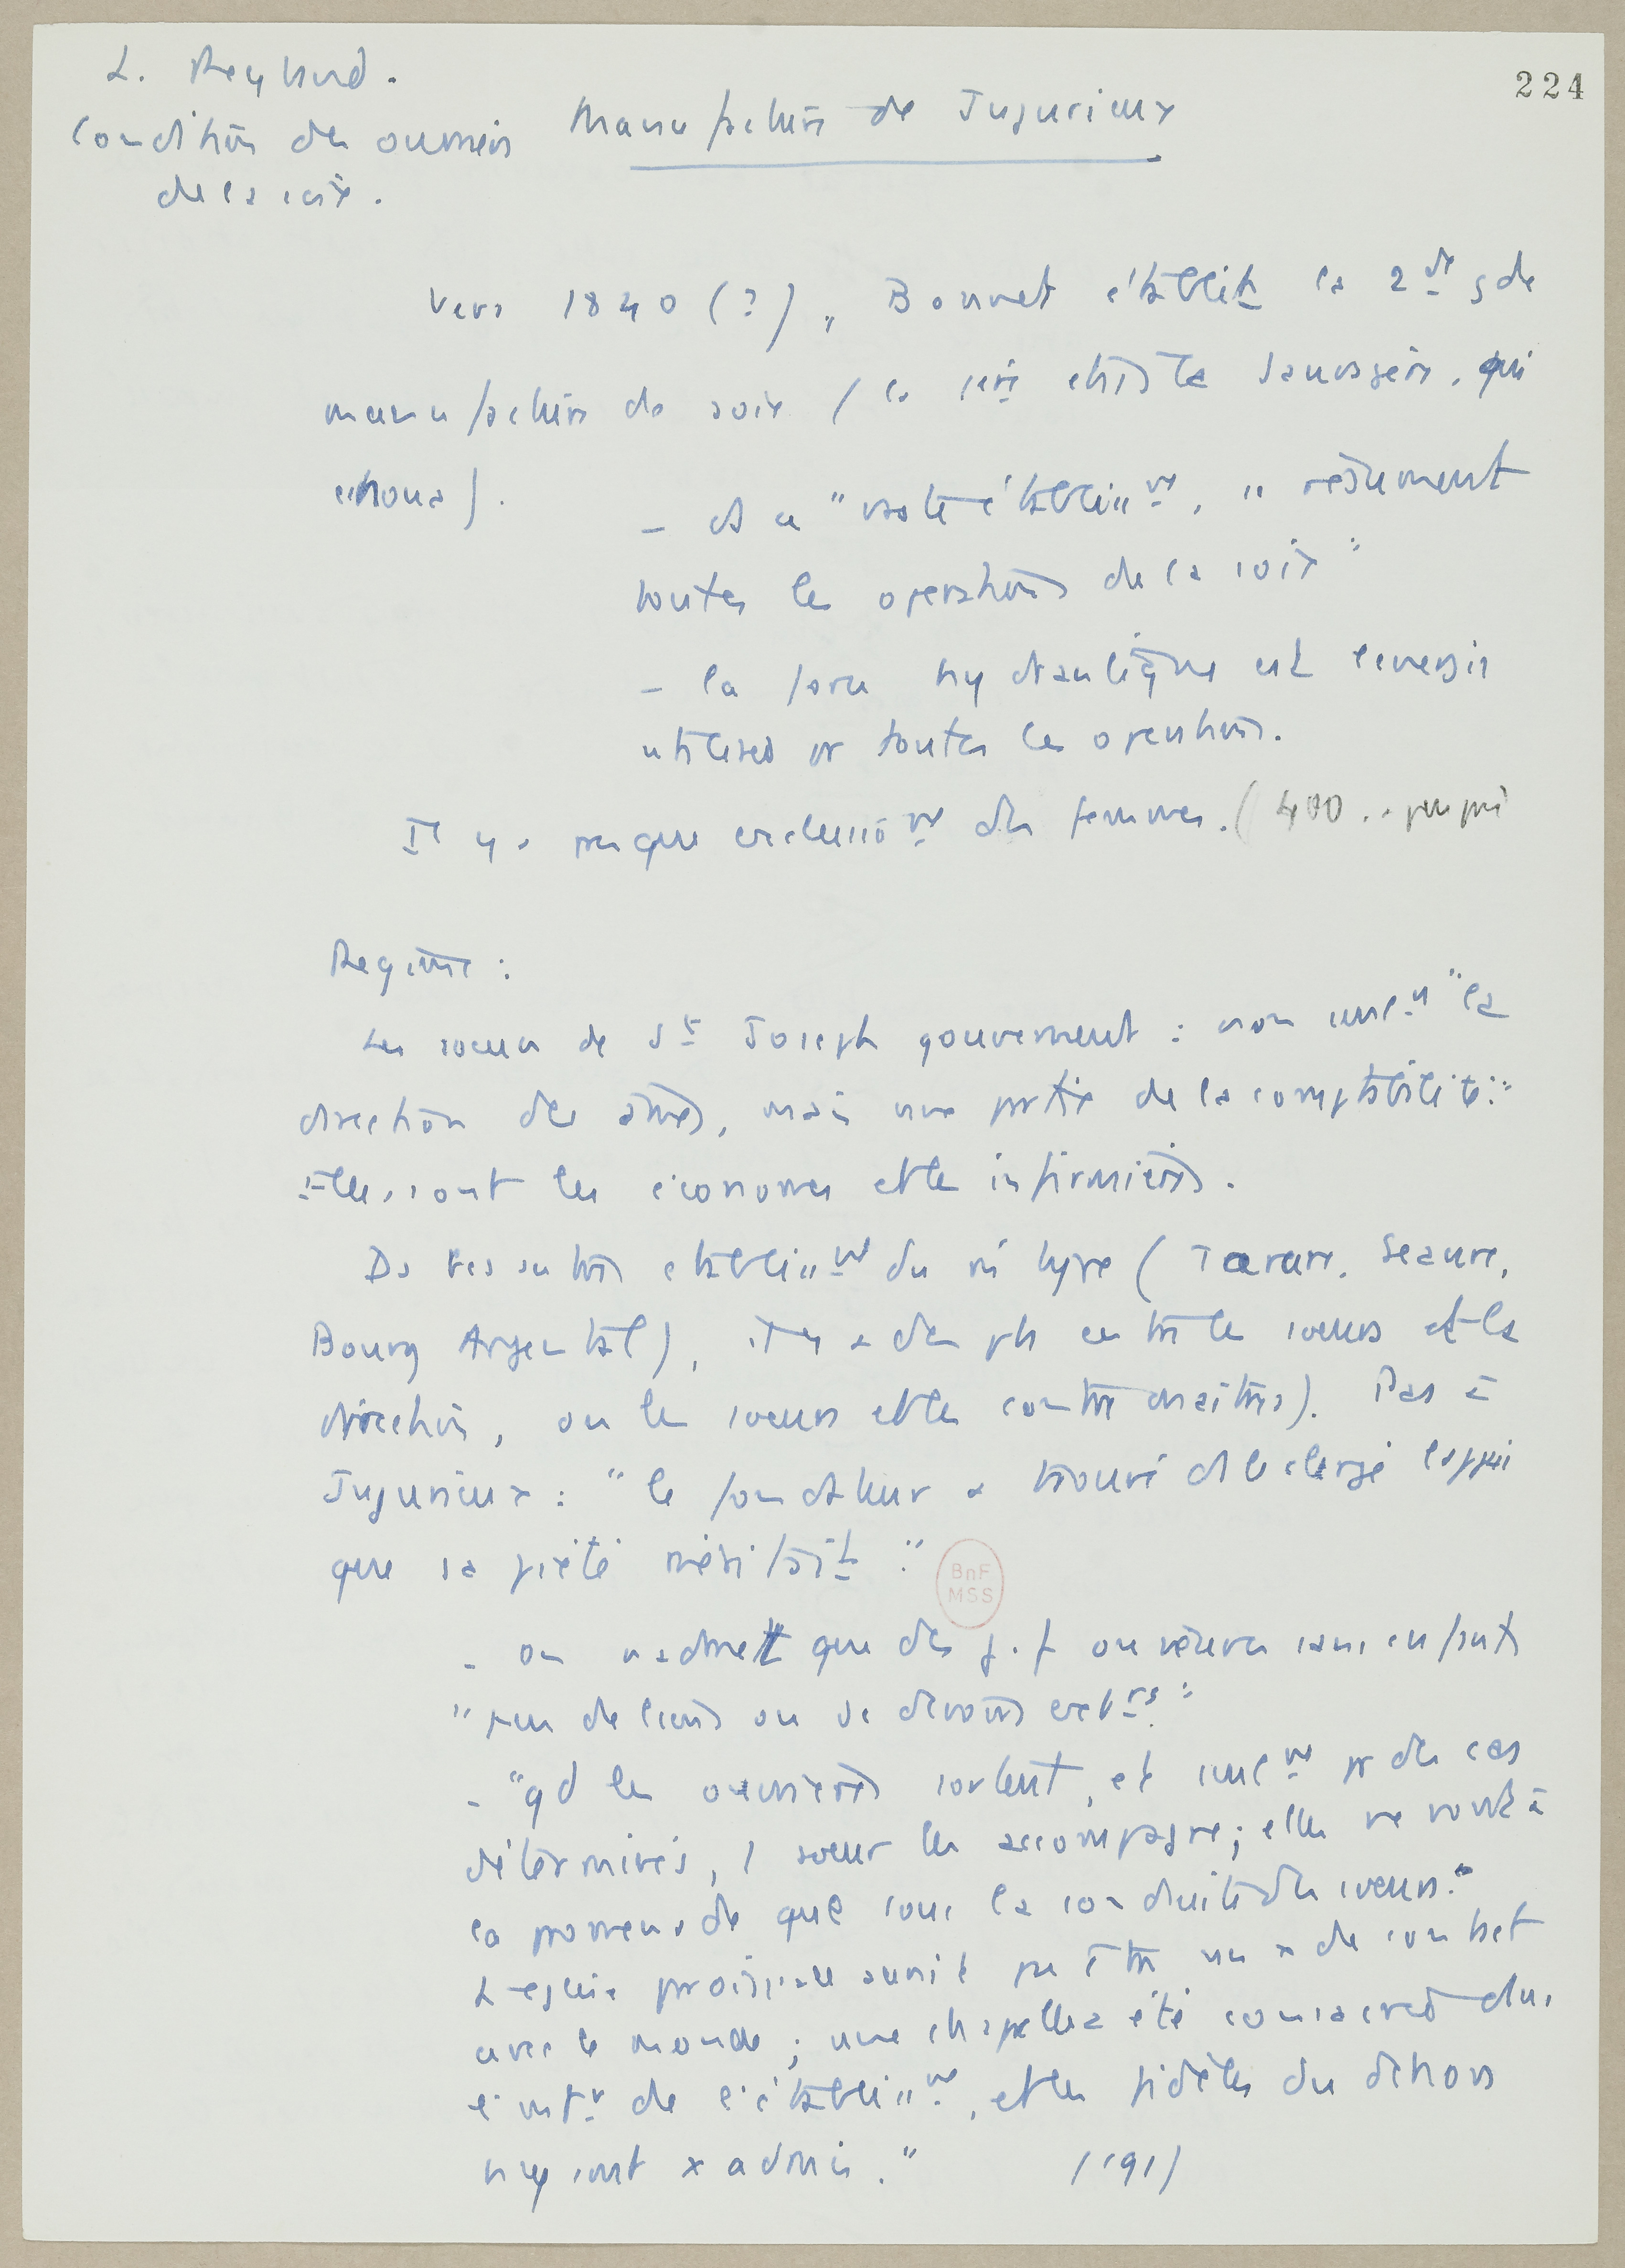 L. Reybaud.
Condition des ouvriers
de la soie.
Manufacture de Jujurieux
224
Vers 1840 (?), Bonnet établit la 2de gde
manufacture de soie (la 1ère était à la Sauvagère, qui
échoua).
- ds ce "vaste établisst, " résument
toutes les opérations de la soie"
- la force hydraulique est
utilisée pr toutes les opérations.
Il y a presque exclusivt des femmes. (400
Régime :
Les soeurs de St Joseph gouvernent : non seult "la
direction des âmes, mais une partie de la comptabilité."
Elles sont les économes et les infirmières.
Ds les autres établisst du m̂ type (Tarare, Séauve,
Bourg Argental), il y a des pb entre les soeurs et la
direction, ou les soeurs et les contremaîtres). Pas à
Jujurieux : "le fondateur a trouvé ds le clergé l'appui
que sa piété méritait."
BnF
MSS
- on n'admet que des j. f ou veuves sans enfants
"peu de liens ou de devoirs extrs."
- "qd les ouvrières sortent, et seult pr des cas
déterminés, 1 soeur les accompagne ; elles ne vont à
la promenade que sous la conduite des soeurs."
L'église paroissiale aurait pu être un x de contact
avec le monde ; une chapelle a été consacrée ds
l'intr de l'établisst, et les fidèles du dehors
n'y sont x admis."    (191)